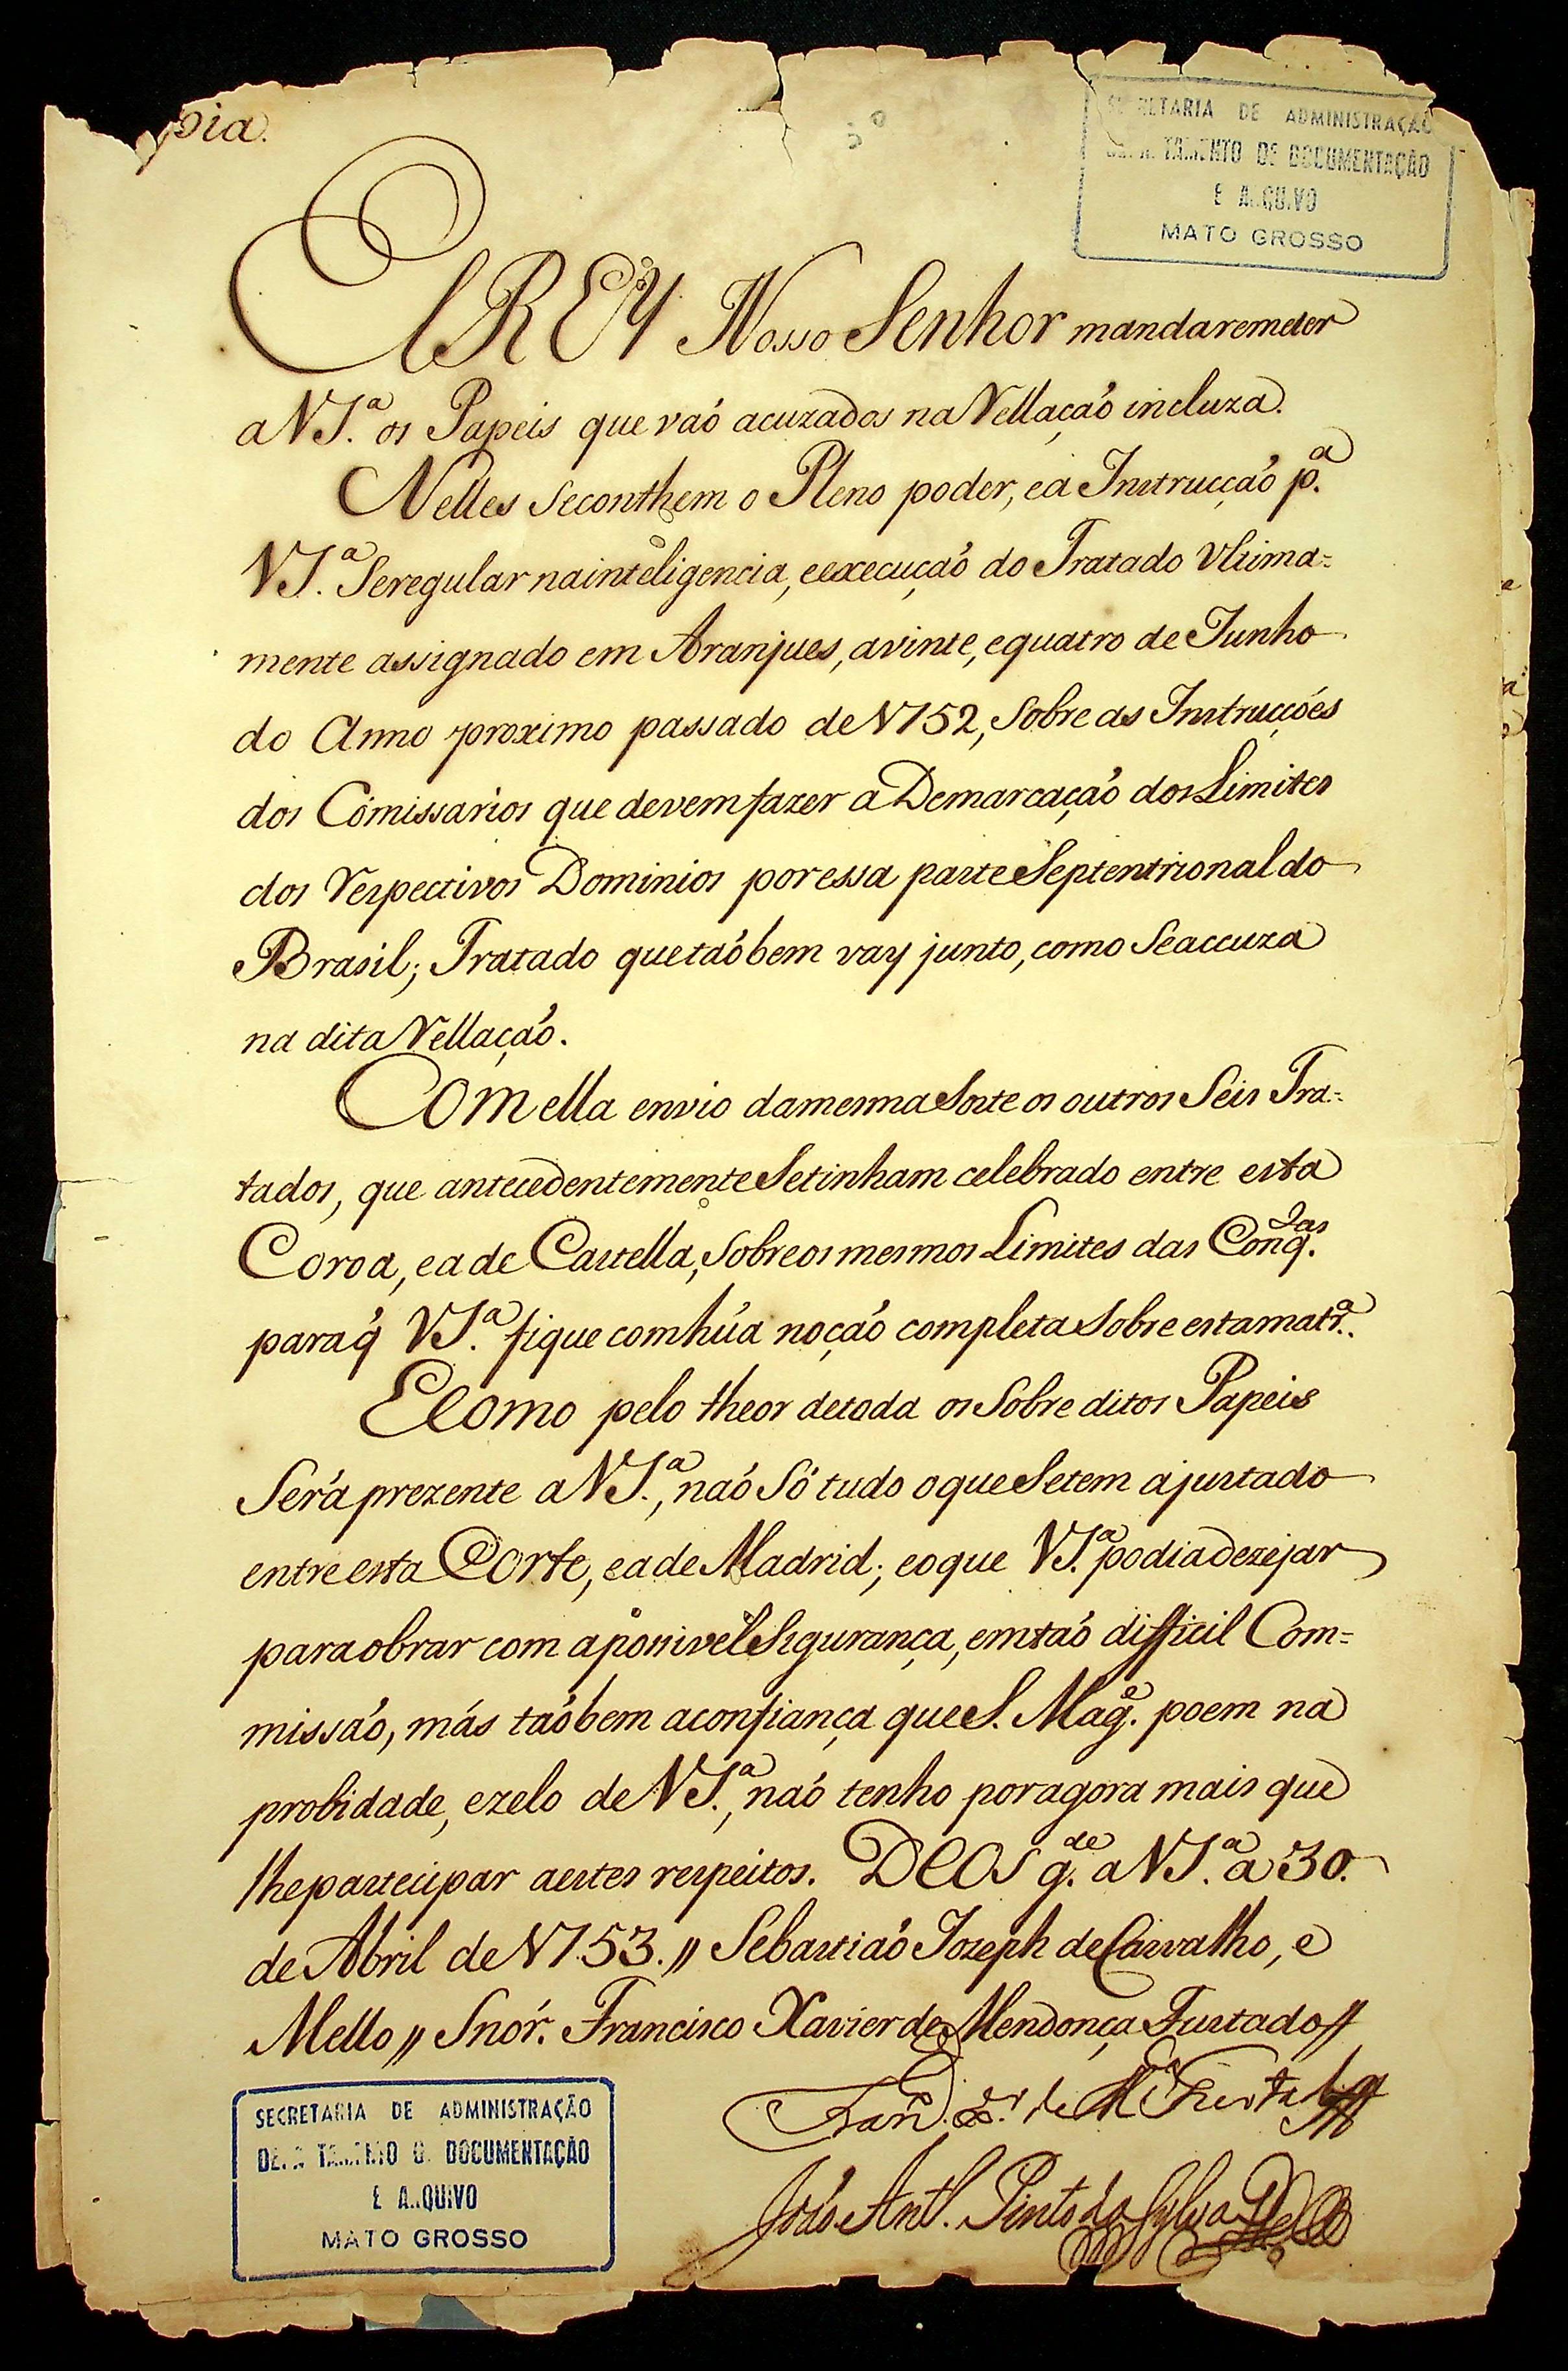 pia.
3º
SECRETARIA DE ADMINISTRAÇÃO
TAMENTO DE DOCUMENTAÇÃO
E A.QUIVO
MATO GROSSO
ElREY Nosso Senhor manda remeter
a VS.ª os Papeis que vaõ acuzados na Rellaçaõ incluza.
Nelles se conthem o Pleno poder, e a Instrucçaõ p.ª
VS.ª se regular na inteligencia, e execuçaõ do Tratado Ultima=
mente assignado em Aranjues, a vinte, e quatro de Junho
do Anno proximo passado de 1752, sobre as Instrucções
dos Cõmissarios que devem fazer a Demarcaçaõ dos Limites
dos Respectivos Dominios por essa parte Septentrional do
Brasil; Tratado que taõbem vay junto, como se accuza
na dita Rellaçaõ.
Com ella envio da mesma sorte os outros seis Tra=
tados, que antecedentemente se tinham celebrado entre esta
Coroa, e a de Castella, sobre os mesmos Limites das Conq.tas
para q̃ VS.ª fique com hũa noçaõ completa sobre esta matr.ª.
E como pelo theor de toda os sobre ditos Papeis
será prezente a VS.ª, naõ só tudo o que se tem ajustado
entre esta Corte, e a de Madrid; e o que VS.ª podia dezejar
para obrar com a possivel segurança, em taõ difficil Com=
missaõ, más taõbem a confiança que S. Mag.e poem na
probidade, e zelo de VS.ª, naõ tenho por agora mais que
lhe partecipar a estes respeitos. DEOS g.de a VS.ª a 30.
de Abril de 1753.,, Sebastiaõ Jozeph de Carvalho, e
Mello,, Snór. Francisco Xavier de Mendonça Furtado,,
Fran.co X.er de M.ça Furtado
João Ant.º Pinto da Sylva
SECRETARIA DE ADMINISTRAÇÃO
DE.A TAMENTO D. DOCUMENTAÇÃO
E A.QUIVO
MATO GROSSO